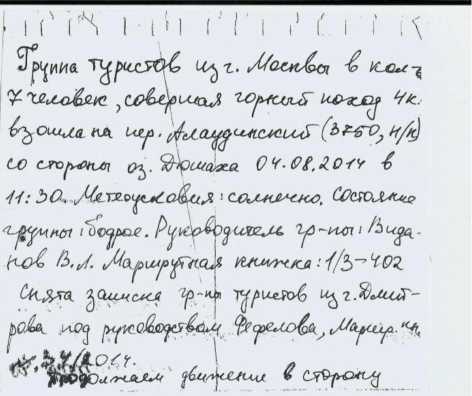 Группа туристов из г. Москвы в кол-
7 человек, совершая горный поход 4 к.
взошла на пер. Алаудинский (3750, н/к)
со стороны оз. Дюшаха 04.08.2014 в
11:30. Метеоусловия: солнечно. Состояние
группы: бодрое. Руководитель гр-пы: Вида-
нов В.Л. Маршрутная книжка: 1/3-402
Снята записка гр-пы туристов из г. Дмит-
рова под руководством Фефелова, Маршр. кн.
34/2014.
Продолжаем движение в сторону